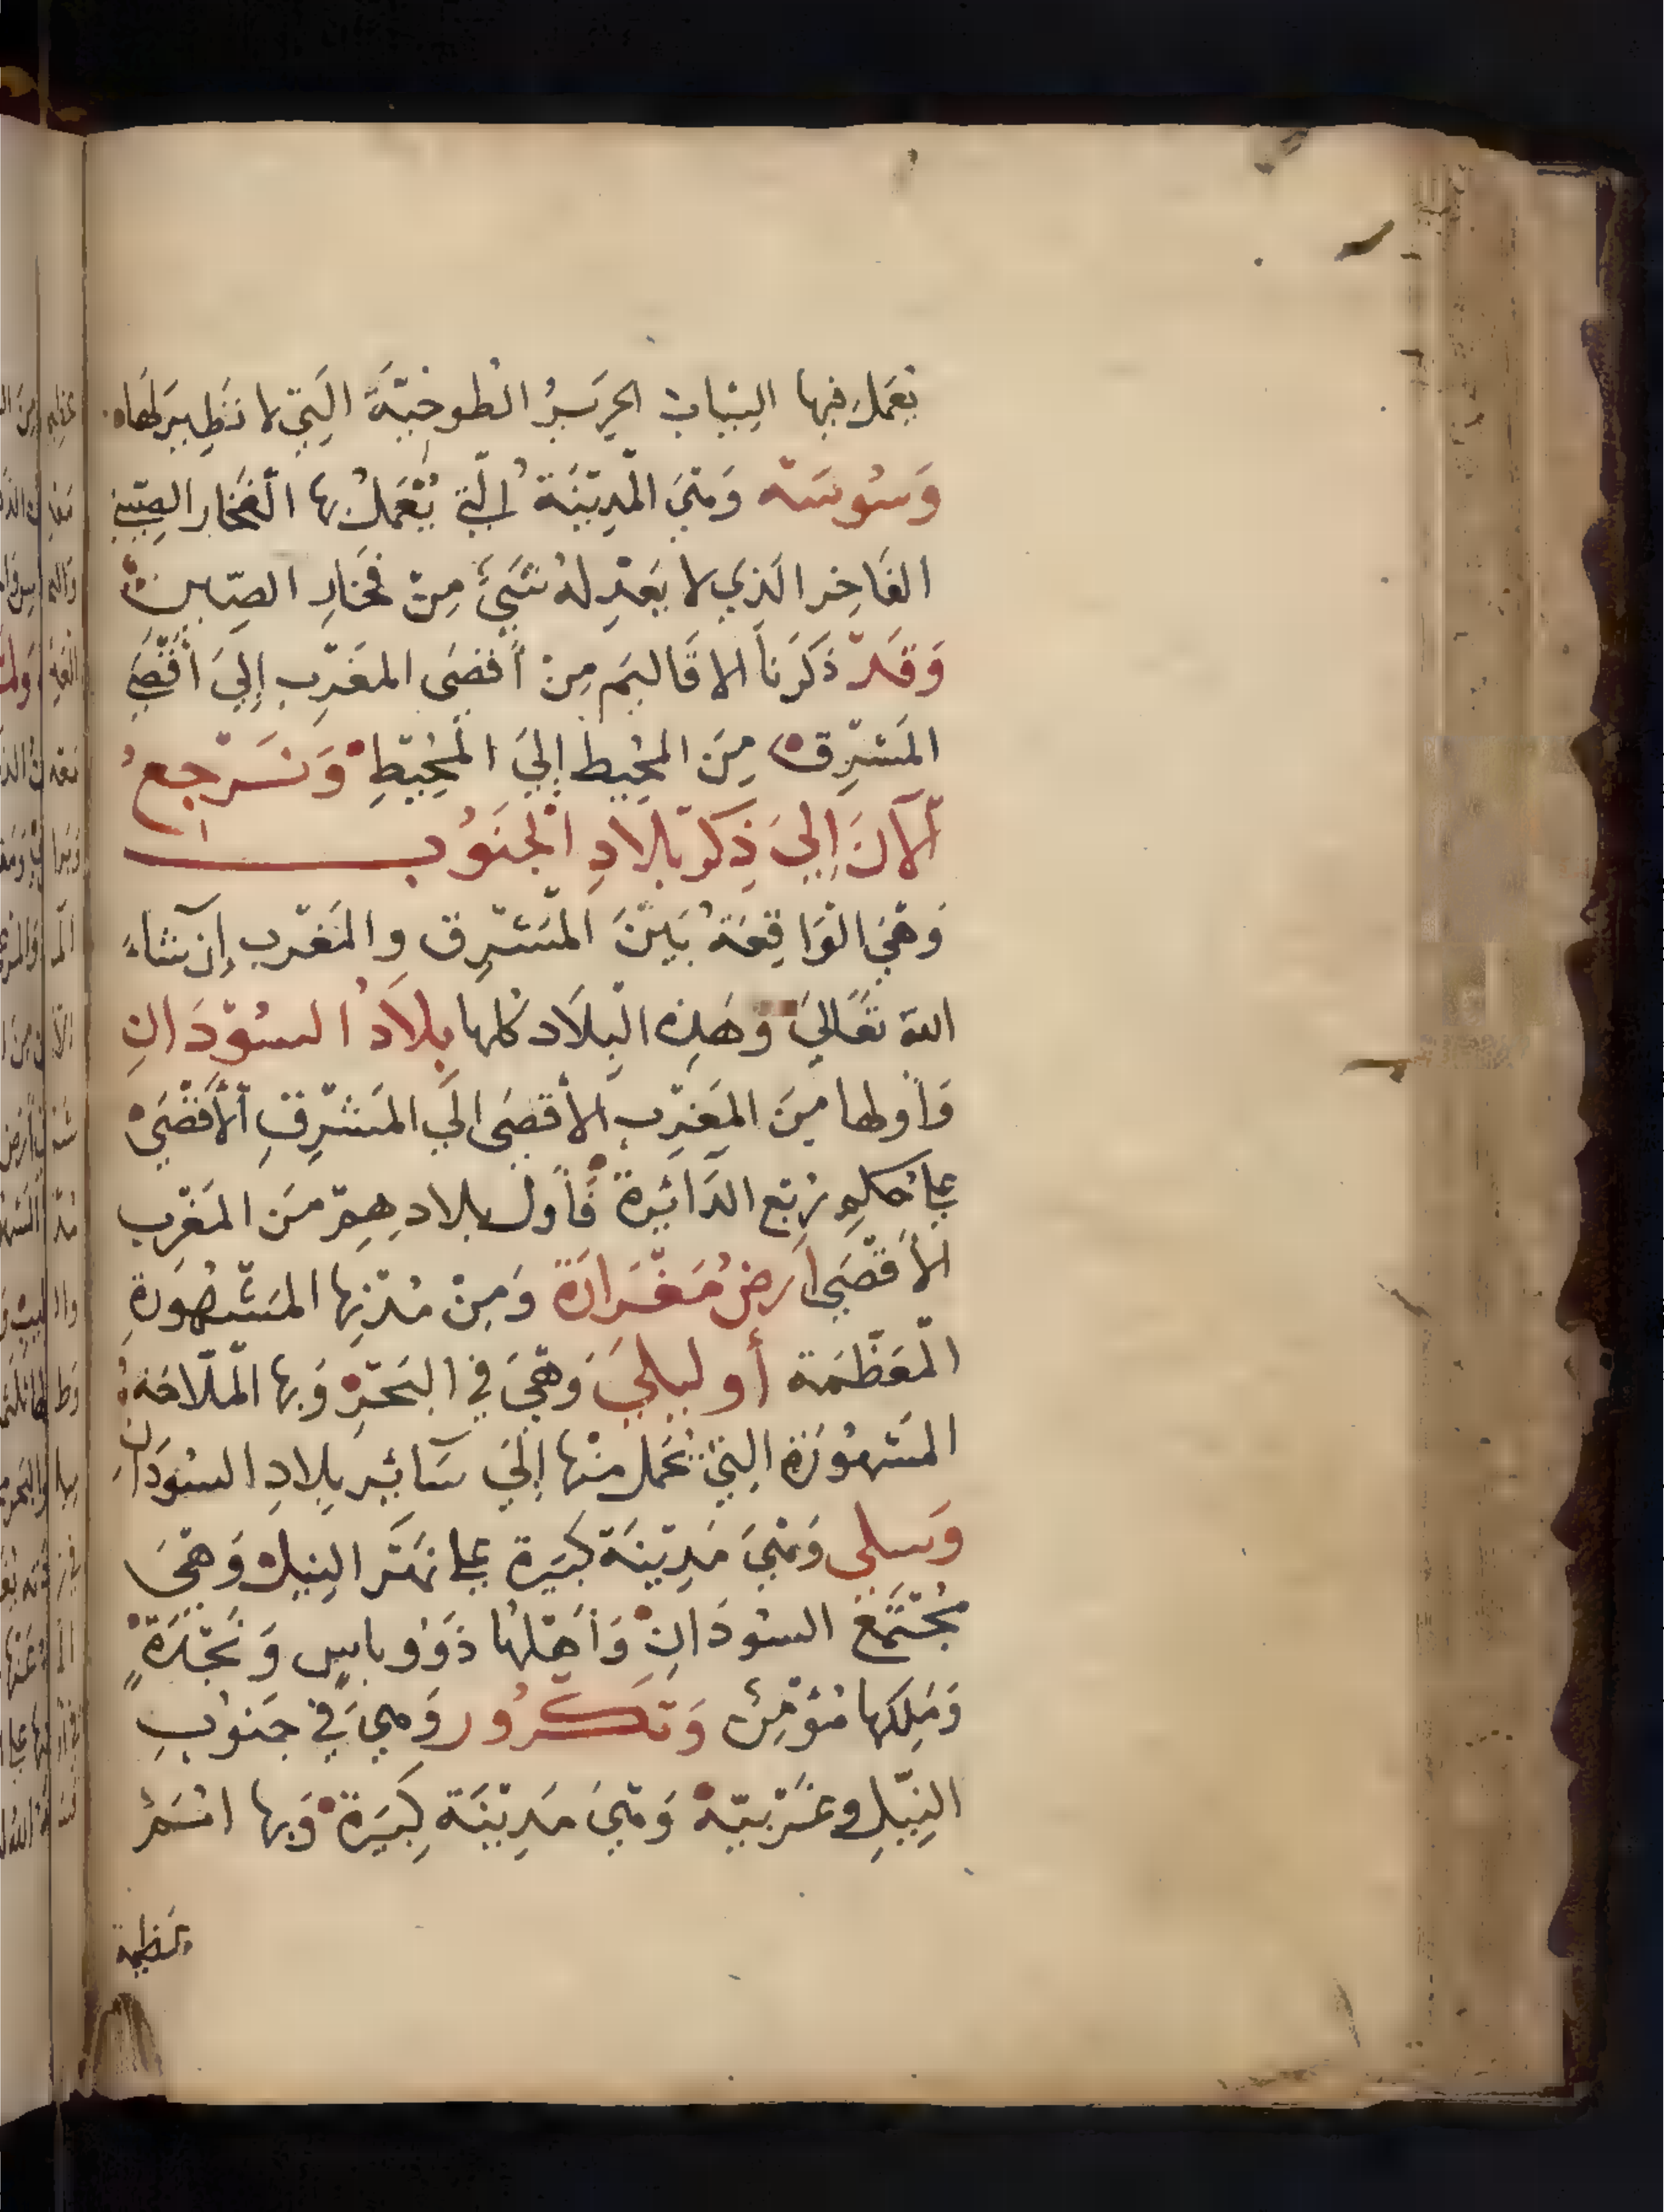 تعمل فيها الثياب الحرير الطوخيّة التي لا نظير لها
وَسُوسَة وَهيَ المدينة التي يُعمل بها الفخار الصيني
الفاخر الذي لا يعدله شيء من فخار الصين
وَقد ذكرنا الاقاليم من أقصى المغرب إلى أقصى
المشرق من المحيط إلى المحيط وَنسرجع
الآن إلى ذكر بلاد الجنوب
وَهيَ الواقعة بين المشرق والمغرب إن شاء
الله تعالى وهذه البلاد كلها بلاد السودان
وَأولها من المغرب الأقصى الى المشرق الأقصى
على حكم ربع الدائرة فأول بلادهم من المغرب
الأقصى ارض مغزارة وَمن مدنها المشهورة
المعظمة أوليلى وَهيَ في البحر وَبها الملاحة
المشهورة التي تحمل منها إلى سائر بلاد السودان
وَسلى وَهيَ مدينة كبيرة على نهر النيل وَهيَ
مجتمع السودان وَأهلها ذوو باس وَنجدة
وَملكها مؤمن وَتكرور وَهي في جنوب
النيل وغربيه وَهيَ مدينة كبيرة وَبها امم
عظيمة